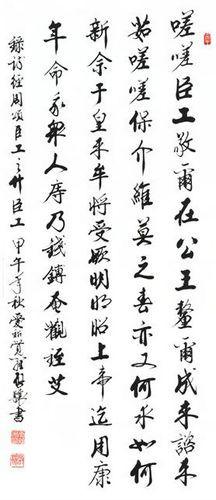 嗟嗟臣工敬爾在公王釐爾成来諮来
茹嗟嗟保介維莫之春亦又何求如何
新畬于皇来牟將受厥明明昭上帝迄用康
年命我眾人庤乃錢鎛奄觀銍艾
錄詩經周頌臣工之什臣工 甲午年秋 書